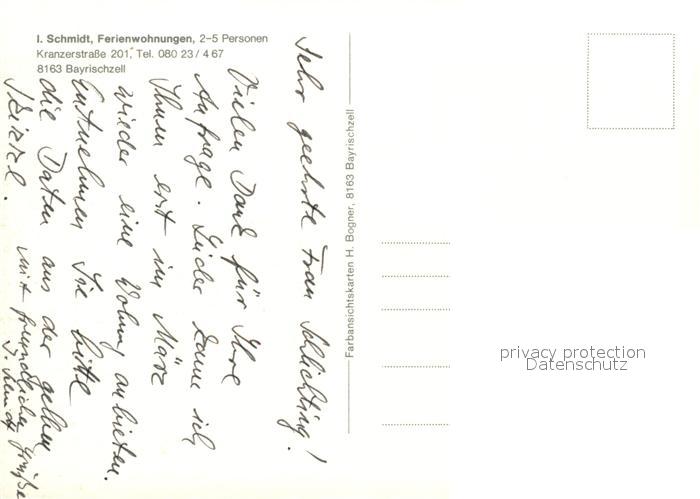 I. Schmidt, Ferienwohnungen, 2–5 Personen
Kranzerstraße 201, Tel. 080 23 / 4 67
8163 Bayrischzell
Sehr geehrte Frau Schlichting!
Vielen Dank für Ihre
Anfrage. Leider kann ich
Ihnen erst im März
wieder eine Wohng anbieten.
Entnehmen Sie bitte
die Daten aus der gelben
Skizze.
mit freundlichen Grüße
I. Schmidt
Farbansichtskarten H. Bogner, 8163 Bayrischzell
privacy protection
Datenschutz